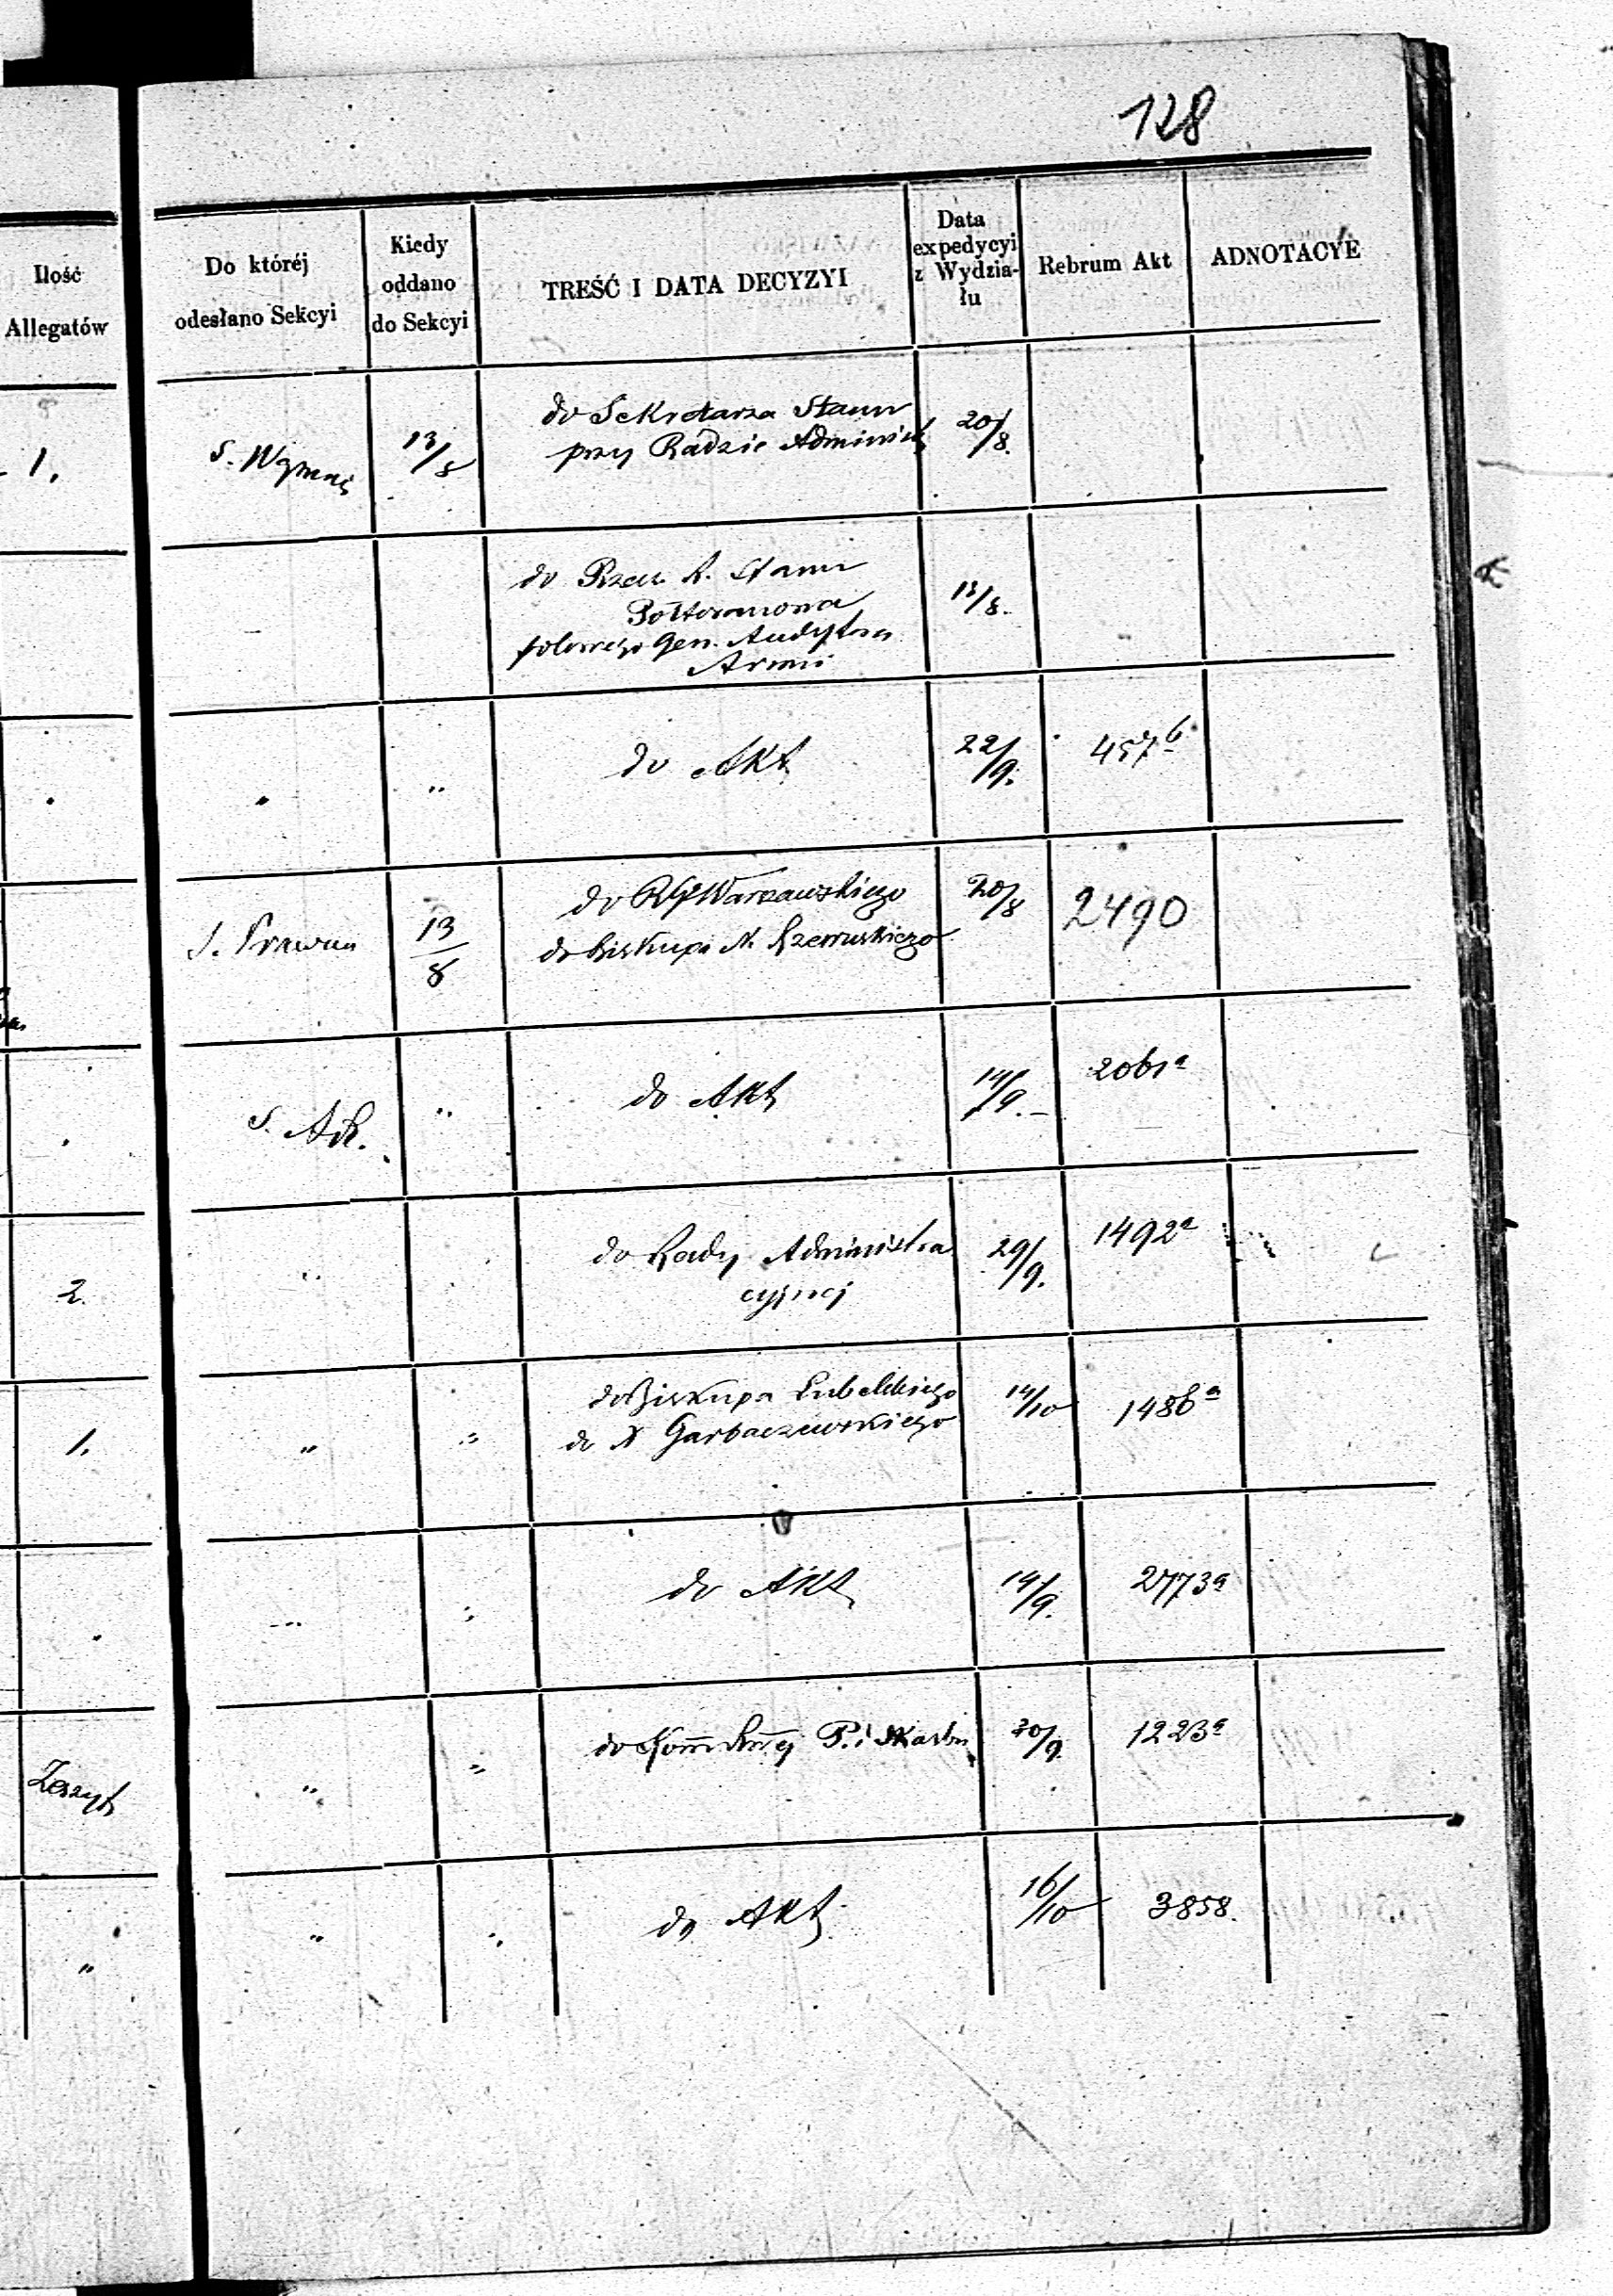 128
Ilość
Allegatów
Do któréj
odesłano Sekcyi
Kiedy
oddano
do Sekcyi
TREŚĆ I DATA DECYZYI
Data
expedycyi
z Wydzia-
łu
Rebrum Akt
ADNOTACYE
1. S. Wyznań 13/8 do Sekretarza Stanu 20/8.
przy Radzie Administ
do Rzecz. R. Stanu 13/8.
polowego Gen. Audytora
Armii
" " do Akt 22/9. 457 b
S. Prawna 13/8 do RGWarszawskiego 20/8 2490
do Biskupa N. Rzewuskiego
S. Adk. " do Akt 14/9.– 2061 a
2. " do Rady Administra 29/9. 1492 a
cyjnej
1. " " do Biskupa Lubelskiego 14/10 1486 a
do X Garbaczewskiego
" " do Akt 14/9. 2773 a
Zeszyt " " do Komm P. i Skarbu 30/9. 1223 a
" " " do Akt 16/10 3858.